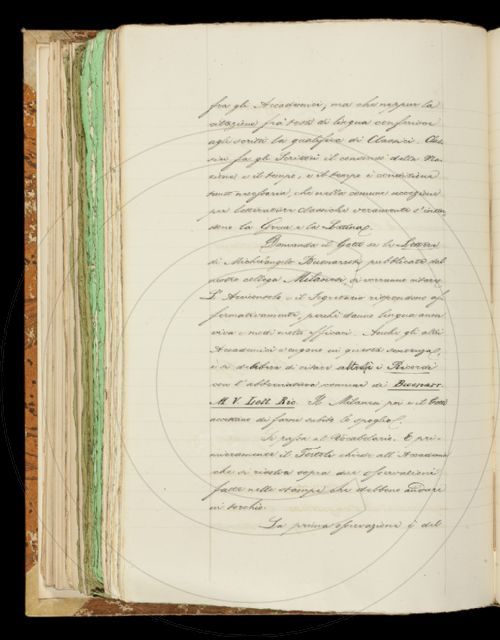 fra gli Accademici, ma che neppur la
citazione fra testi di lingua conferisce
agli scritti la qualifica di Classici. Clas-
sici fa gli Scrittori il consenso della Na-
zione e il tempo, e il tempo è condizione
tanto necessaria, che nella comune accezione
per letterature classiche veramente s'inten
dono la Greca e la Latina.
Domanda il Gotti se le Lettere
di Michelangelo Buonarroti, pubblicate dal
nostro collega Milanesi, si vorranno citare.
L'Arciconsolo e il Segretario rispondono af-
fermativamente, perchè danno lingua anco
viva e modi molto efficaci. Anche gli altri
Accademici vengono in questa sentenza,
e si delibera di citare altresì i Ricordi
con l'abbreviatura comune di Buonarr.
M. V. Lett. Ric. Il Milanesi poi e il Gotti
accettano di farne subito lo spoglio.
Si passa al Vocabolario. E pri-
mieramente il Tortoli chiede all'Accademia
che si risolva sopra due osservazioni
fatte nelle stampe che debbono andare
in torchio.
La prima osservazione è del